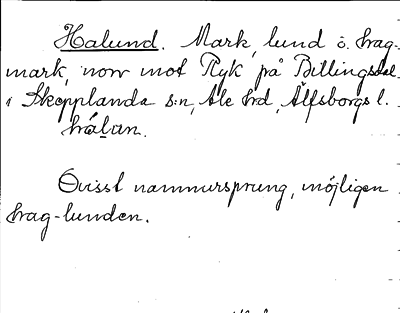 Halund. Mark, lund o. hag-
mark, norr mot Ryk, på Billingsdal
i Skepplanda s:n, Ale hrd, Älfsborgs l.
hálun.
Ovisst namnursprung, möjligen
hag-lunden.